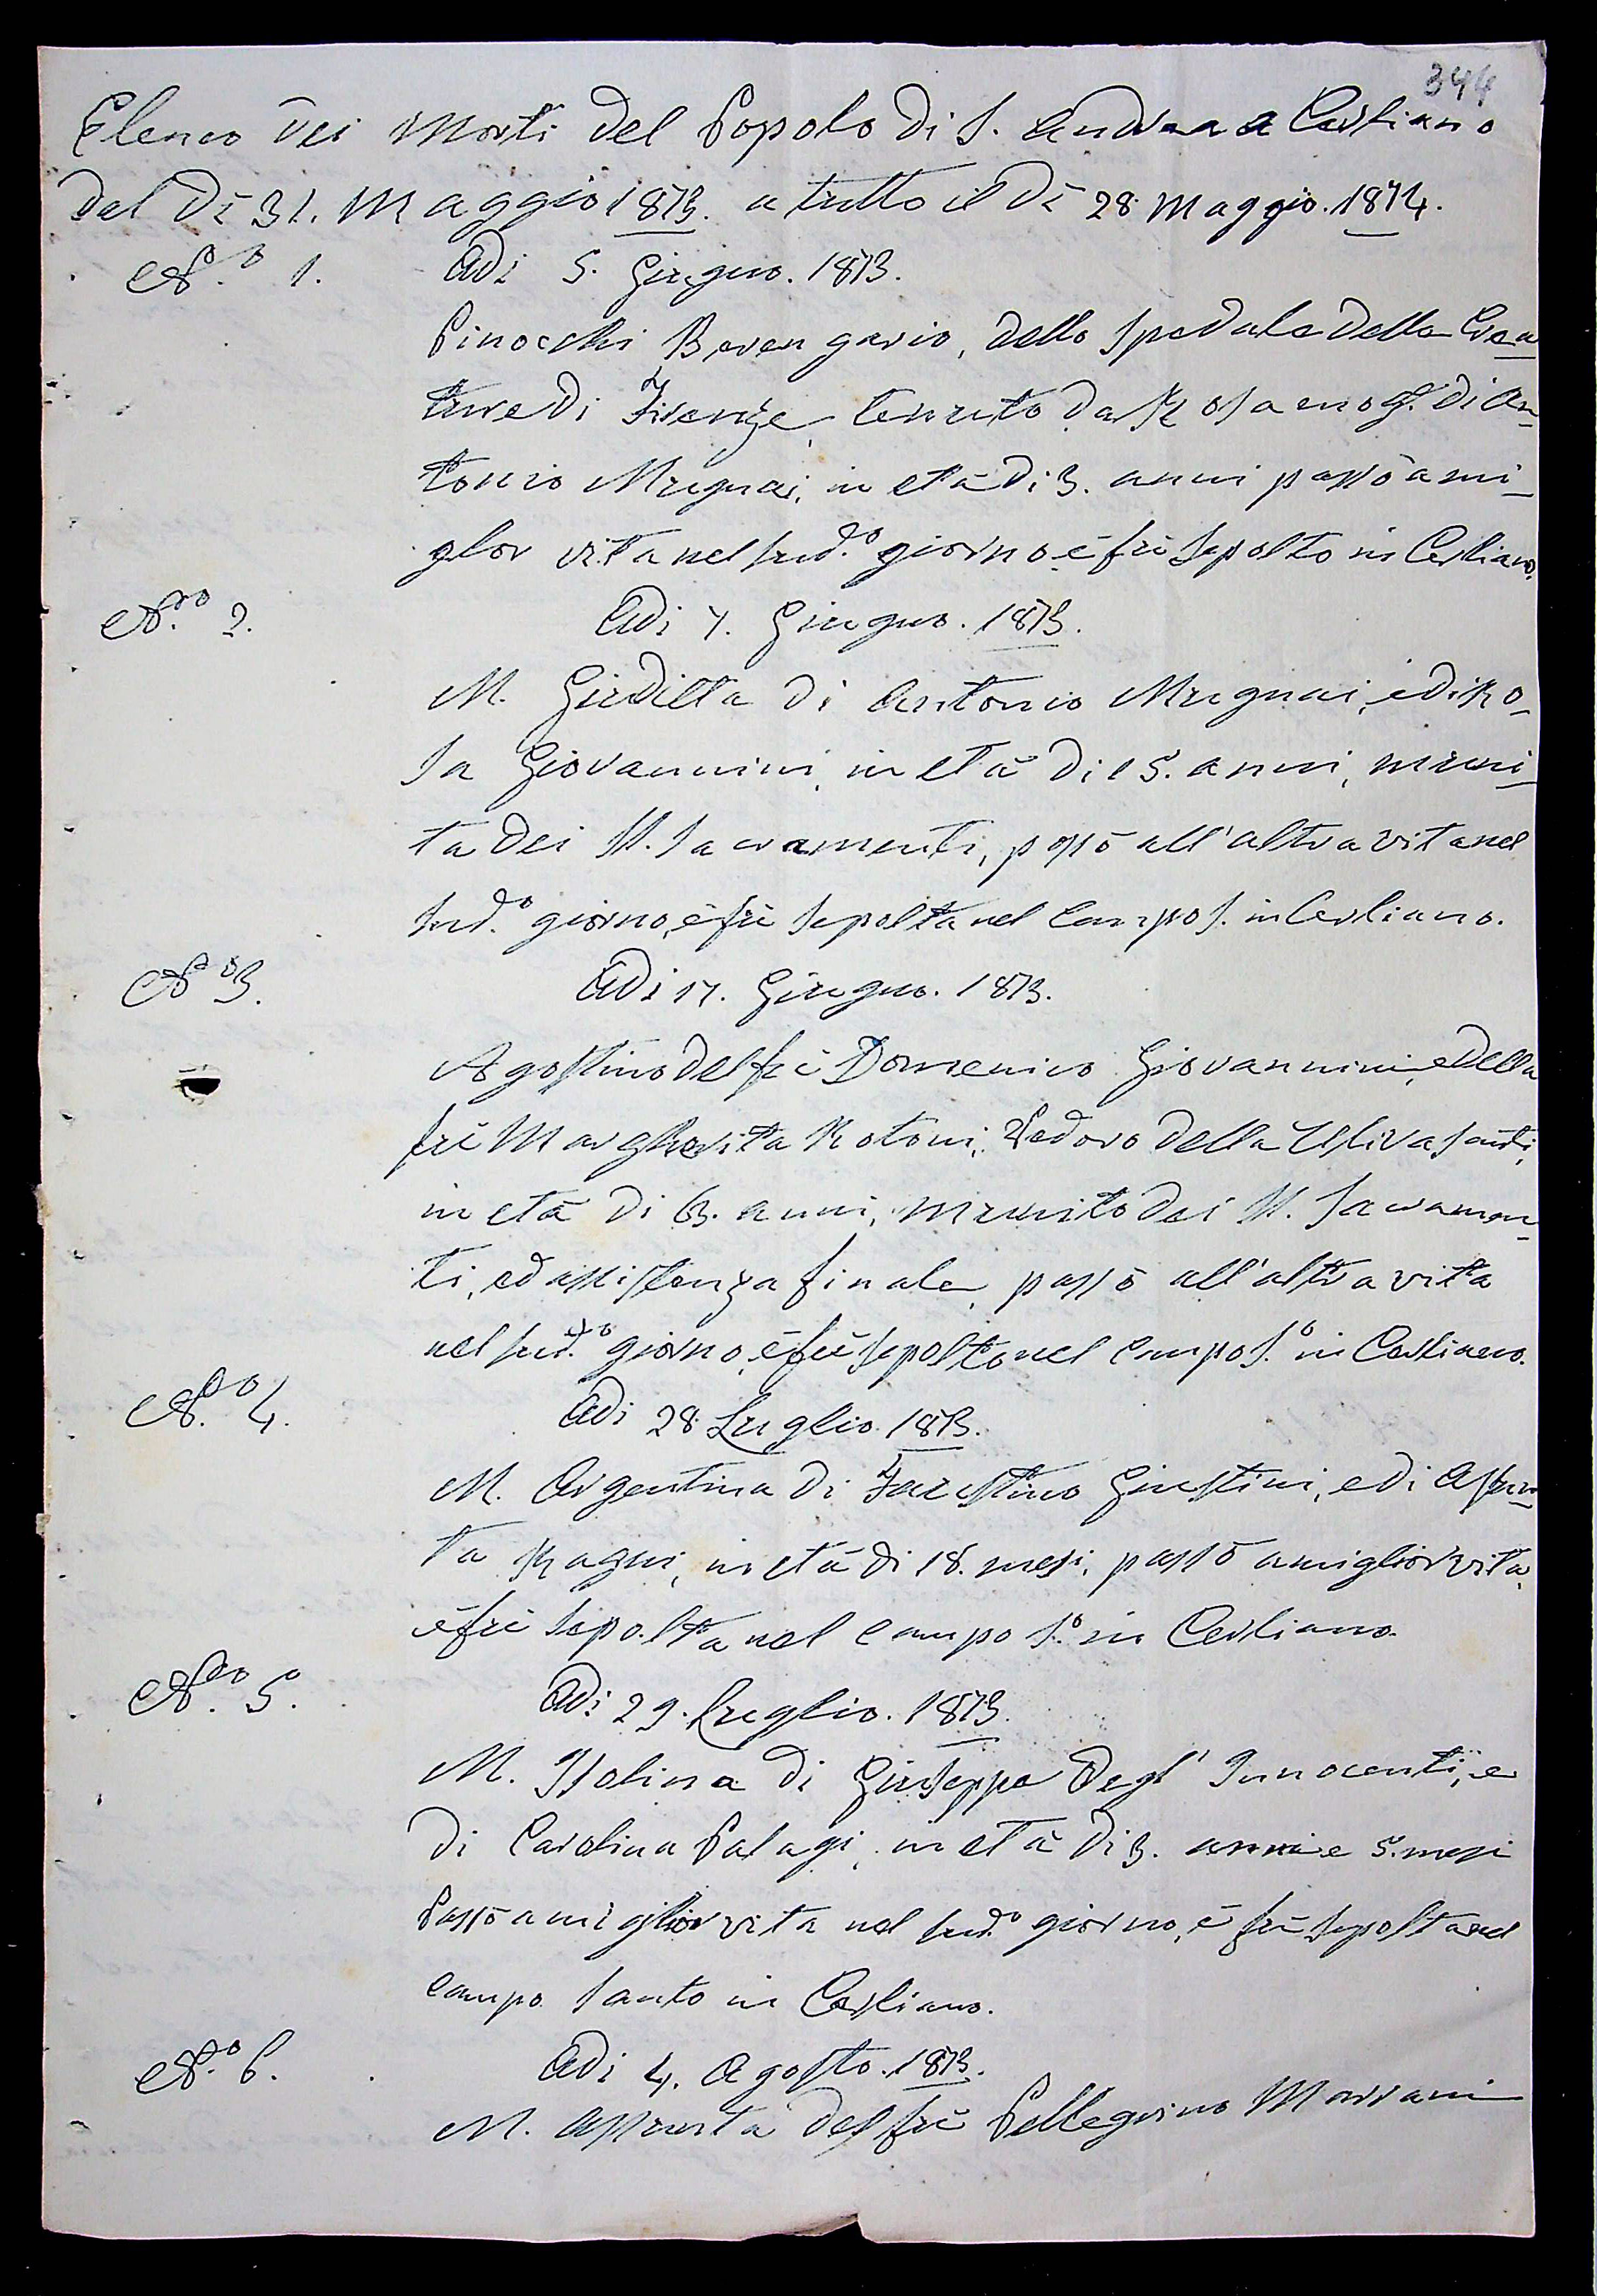 344
Elenco dei Morti del Popolo di S. Andrea a Cestiano
dal dì 31. Maggio 1873. a tutto il dì 28. Maggio. 1874.
N.º 1. Adi 5. Giugno. 1873.
Pinocchi Berengario, dello Spedale delle Crea
ture di Firenze, tenuto da Rosa mog. di An-
tonio Mugnai, in età di 3. anni passò a mi-
glior vita nel sud.º giorno, e fù sepolto in Cestiano.
N.º 2. Adi 7. Giugno. 1873.
M. Giuditta di Antonio Mugnai, e di Ro-
sa Giovannini, in età di 15. anni, muni-
ta dei SS. Sacramenti, passò all'altra vita nel
sud.º giorno, e fù sepolta nel Campo S. in Cestiano.
N.º 3. Adi 17. Giugno. 1873.
Agostino del fù Domenico Giovannini, e della
fù Margherita Rotoni, Vedovo della Uliva Santi,
in età di 63. anni, munito dei SS. Sacramen-
ti, ed assistenza finale, passò all'altra vita
nel sud.º giorno, e fù sepolto nel Campo S.º in Cestiano.
N.º 4. Adi 28. Luglio. 1873.
M. Argentina di Faustino Giustini, e di Assun-
ta Ragni, in età di 18. mesi, passò a miglior vita,
e fù sepolta nel Campo S.º in Cestiano.
N.º 5. Adi 29. Luglio. 1873.
M. Isolina di Giuseppe Degl' Innocenti, e
di Carolina Palagi, in età di 3. anni e 5. mesi
Passò a miglior vita nel sud.º giorno, e fù sepolta nel
Campo Santo in Cestiano.
N.º 6. Adi 4. Agosto. 1873.
M. Assunta del fù Pellegrino Marrani